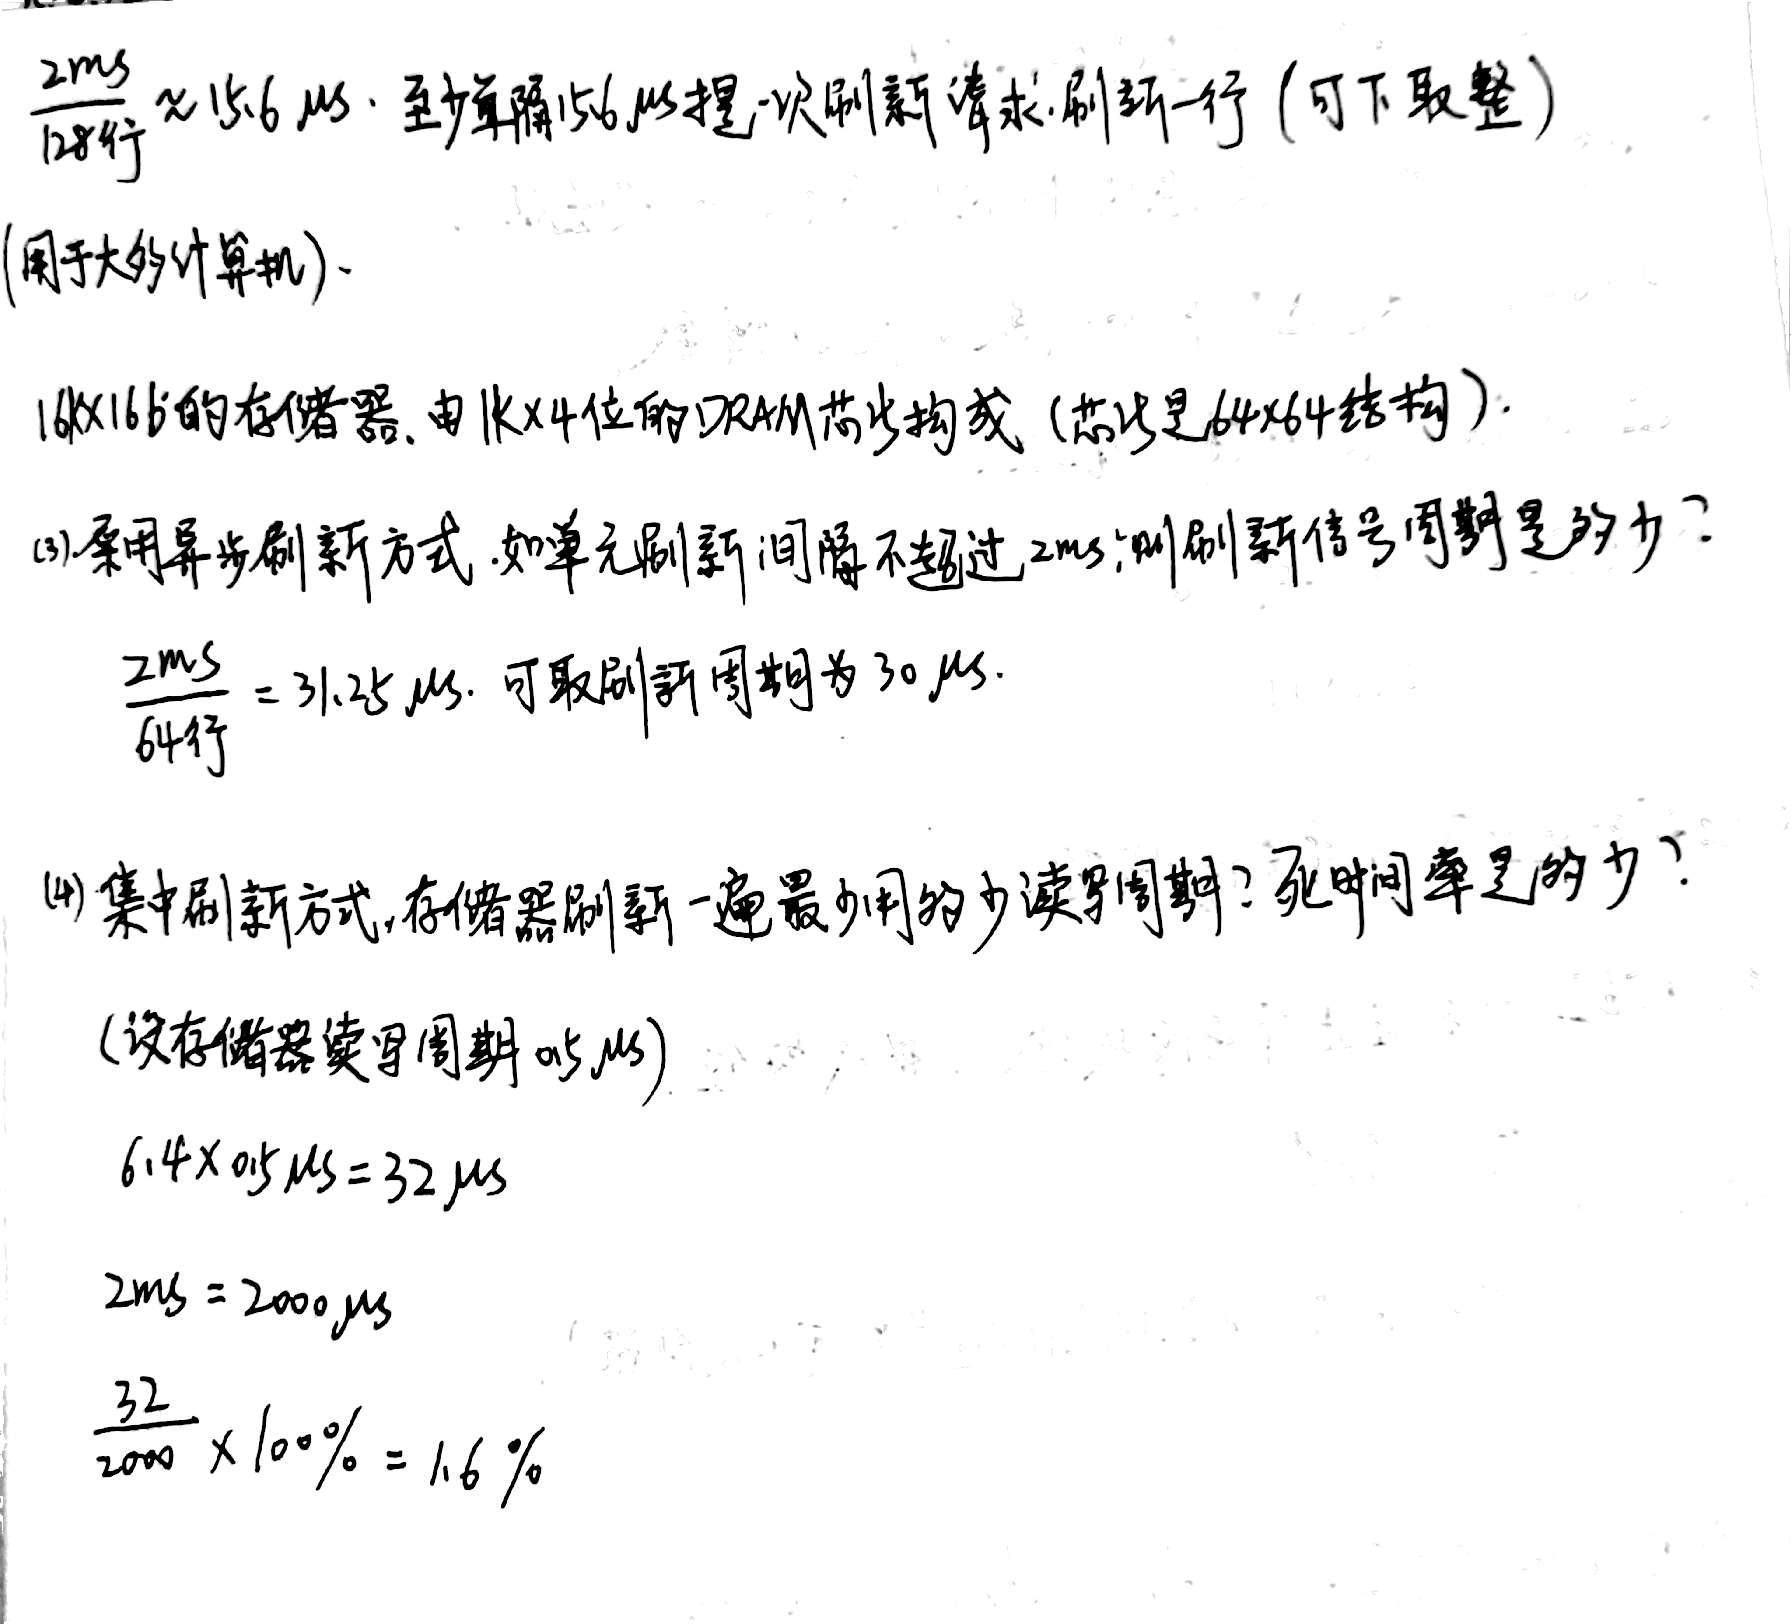 2ms/128行 ≈ 15.6 μs. 至少每隔15.6 μs提一次刷新请求.刷新一行 (可下取整)
(用于大多计算机).
16K×16b的存储器.由1K×4位的DRAM芯片构成 (芯片是64×64结构).
(3).采用异步刷新方式.如单元刷新间隔不超过2ms,则刷新信号周期是多少?
2ms/64行 = 31.25 μs. 可取刷新周期为30 μs.
(4) 集中刷新方式,存储器刷新一遍最少用多少读写周期?死时间率是多少?
(设存储器读写周期0.5 μs)
6.4×0.5 μs = 32 μs
2ms = 2000 μs
32/2000 × 100% = 1.6%